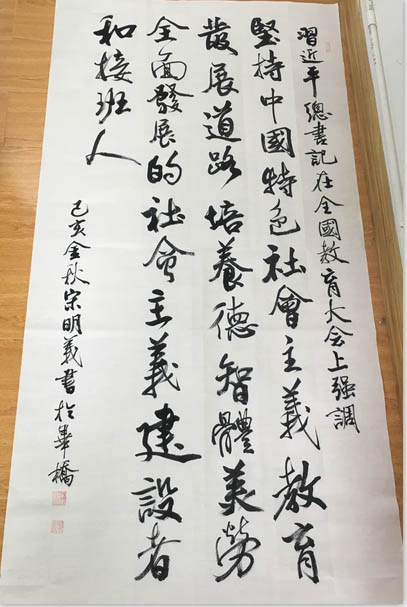 習近平總書記在全國教育大会上强調
堅持中國特色社會主義教育
發展道路培養德智體美勞
全面發展的社會主義建設者
和接班人
己亥金秋宋明義書於畢橋